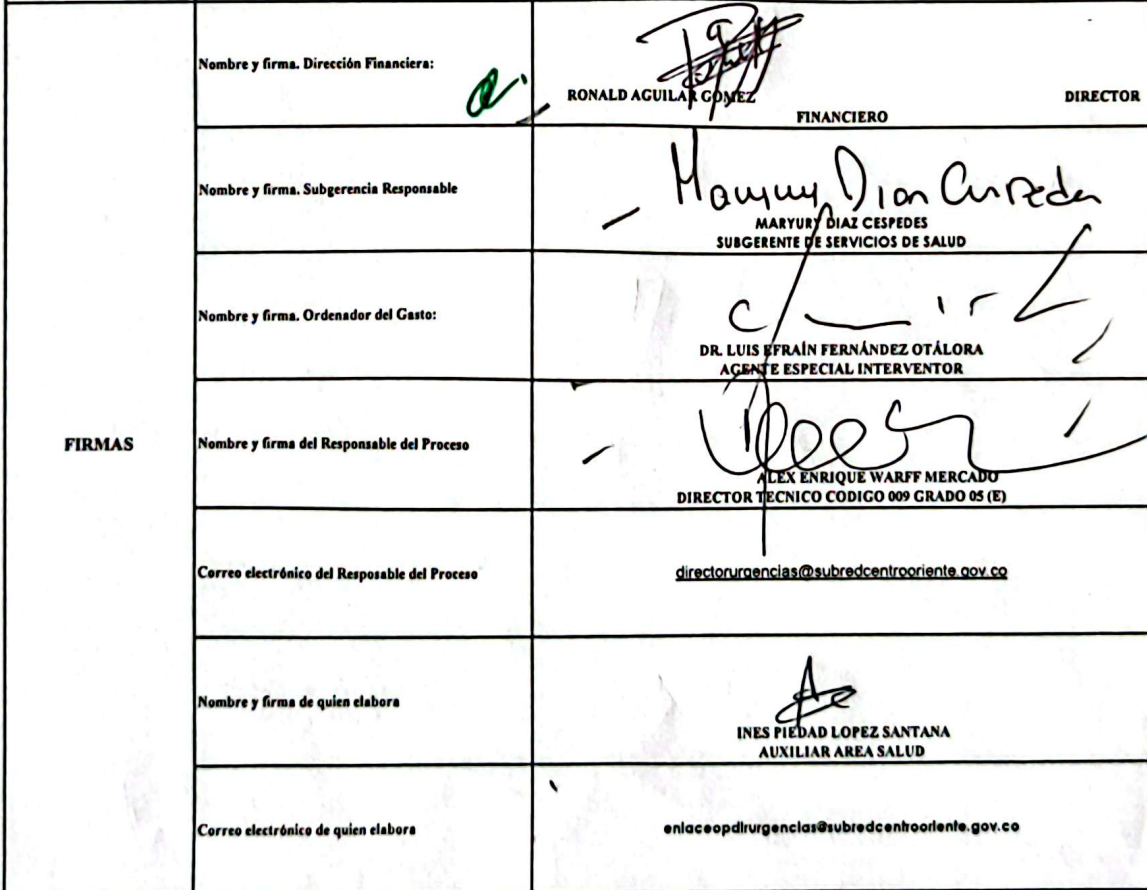 Nombre y firma. Dirección Financiera:
RONALD AGUILAR GOMEZ DIRECTOR
FINANCIERO
Nombre y firma. Subgerencia Responsable
MARYURY DIAZ CESPEDES
SUBGERENTE DE SERVICIOS DE SALUD
Nombre y firma. Ordenador del Gasto:
DR. LUIS EFRAÍN FERNÁNDEZ OTÁLORA
AGENTE ESPECIAL INTERVENTOR
FIRMAS
Nombre y firma del Responsable del Proceso
ALEX ENRIQUE WARFF MERCADO
DIRECTOR TECNICO CODIGO 009 GRADO 05 (E)
Correo electrónico del Resposable del Proceso
directorurgencias@subredcentrooriente.gov.co
Nombre y firma de quien elabora
INES PIEDAD LOPEZ SANTANA
AUXILIAR AREA SALUD
Correo electrónico de quien elabora
enlaceopdirurgencias@subredcentrooriente.gov.co